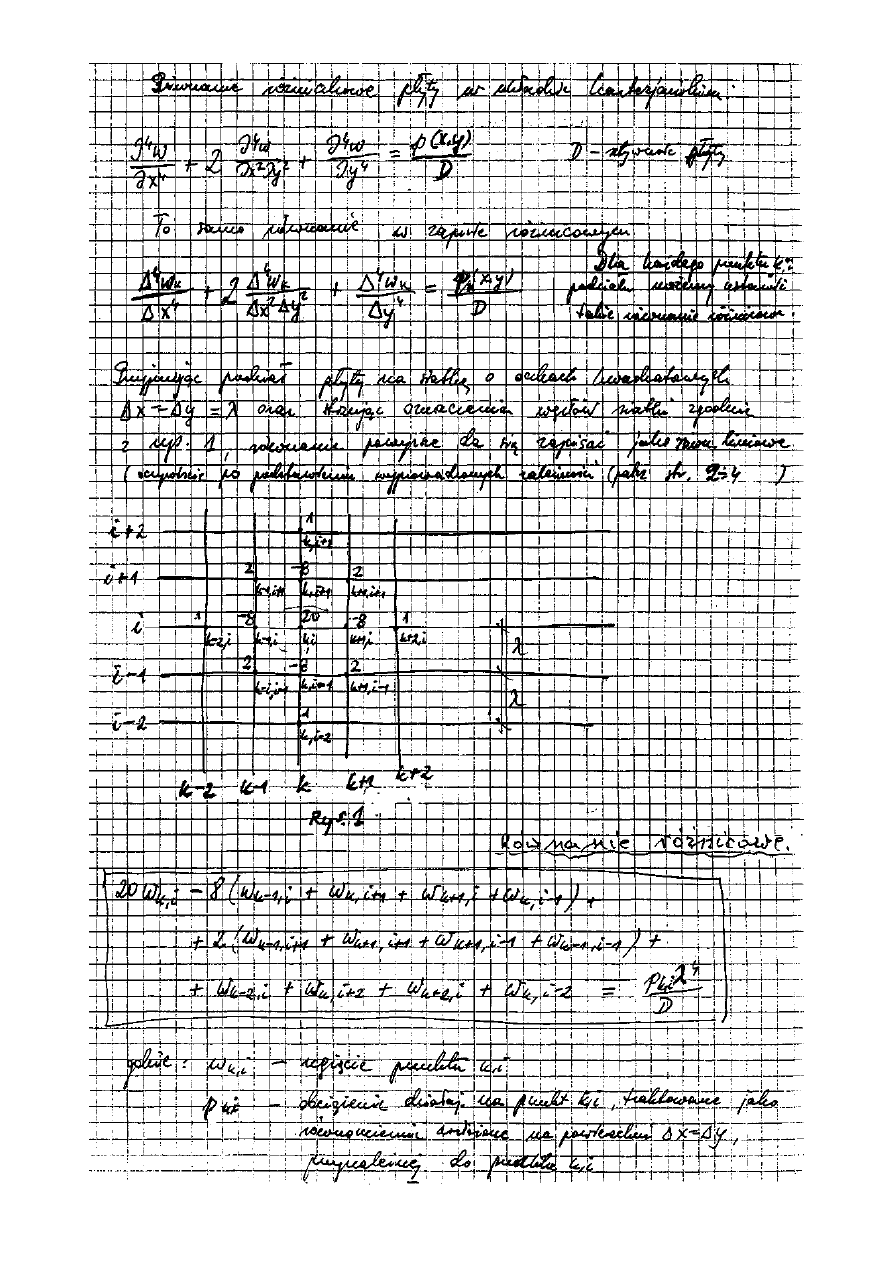 Równanie różniczkowe płyty w układzie kartezjańskim:
∂⁴w/∂x⁴ + 2 ∂⁴w/∂x²∂y² + ∂⁴w/∂y⁴ = p(x,y)/D D – sztywność płyty
To samo równanie w zapisie różnicowym
Δ⁴wₖ/Δx⁴ + 2 Δ⁴wₖ/Δx²Δy² + Δ⁴wₖ/Δy⁴ = pₖ(x,y)/D
Dla każdego punktu k,i
podziału możemy ustawić
takie równanie różnicowe.
Przyjmując podział płyty na siatkę o oczkach kwadratowych
Δx = Δy = λ oraz stosując oznaczenia węzłów siatki zgodnie
z rys. 1, równanie powyższe da się zapisać jako równ. liniowe
(oczywiście po podstawieniu wyprowadzonych zależności (patrz str. 2÷4 )
1
i+2
k,i+2
2 -8 2
i+1
k-1,i+1 k,i+1 k+1,i+1
1 -8 20 -8 1
i
k-2,i k-1,i k,i k+1,i k+2,i
λ
2 -8 2
i-1
k-1,i-1 k,i-1 k+1,i-1
λ
1
i-2
k,i-2
k-2 k-1 k k+1 k+2
Rys. 1
Równanie różnicowe.
20 wk,i - 8 (wk-1,i + wk,i+1 + wk+1,i + wk,i-1) +
+ 2 (wk-1,i+1 + wk+1,i+1 + wk+1,i-1 + wk-1,i-1) +
+ wk-2,i + wk,i+2 + wk+2,i + wk,i-2 = pk,i λ⁴/D
gdzie: wk,i – ugięcie punktu k,i
pk,i – obciążenie działaj. na punkt k,i, traktowane jako
równomiernie rozłożone na powierzchni Δx=Δy,
przynależnej do punktu k,i